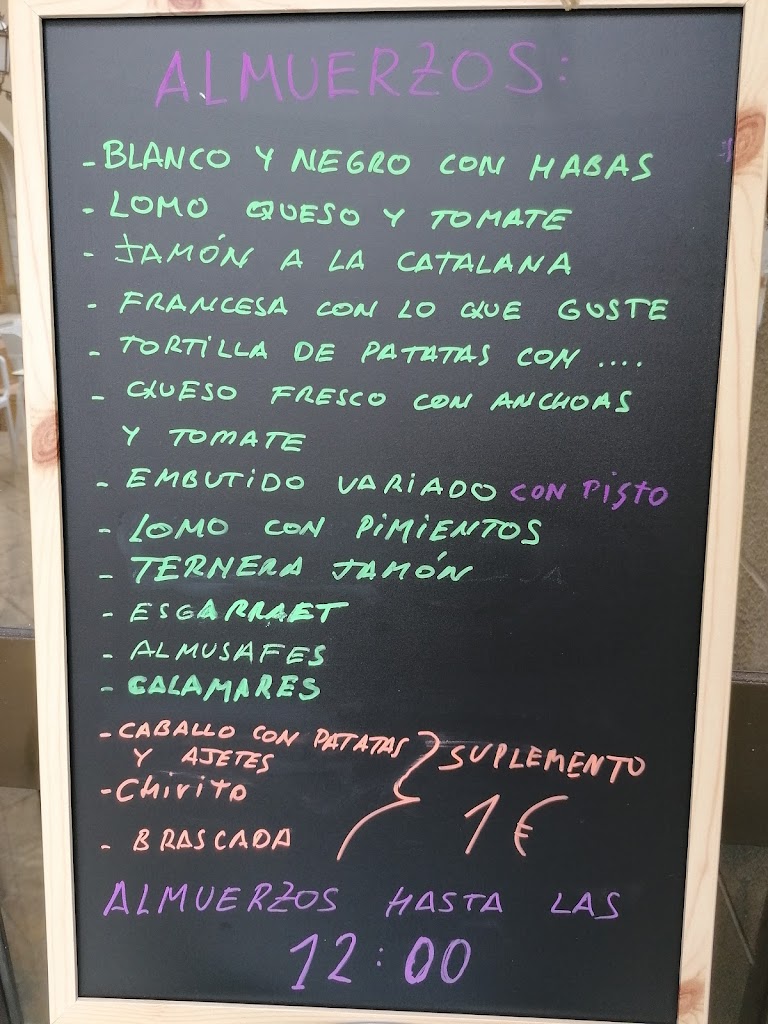 ALMUERZOS:
- BLANCO Y NEGRO CON HABAS
- LOMO QUESO Y TOMATE
- JAMÓN A LA CATALANA
- FRANCESA CON LO QUE GUSTE
- TORTILLA DE PATATAS CON ....
- QUESO FRESCO CON ANCHOAS
Y TOMATE
- EMBUTIDO VARIADO CON PISTO
- LOMO CON PIMIENTOS
- TERNERA JAMÓN
- ESGARRAET
- ALMUSAFES
- CALAMARES
- CABALLO CON PATATAS
Y AJETES
- Chivito
- BRASCADA
SUPLEMENTO
1€
ALMUERZOS HASTA LAS
12:00